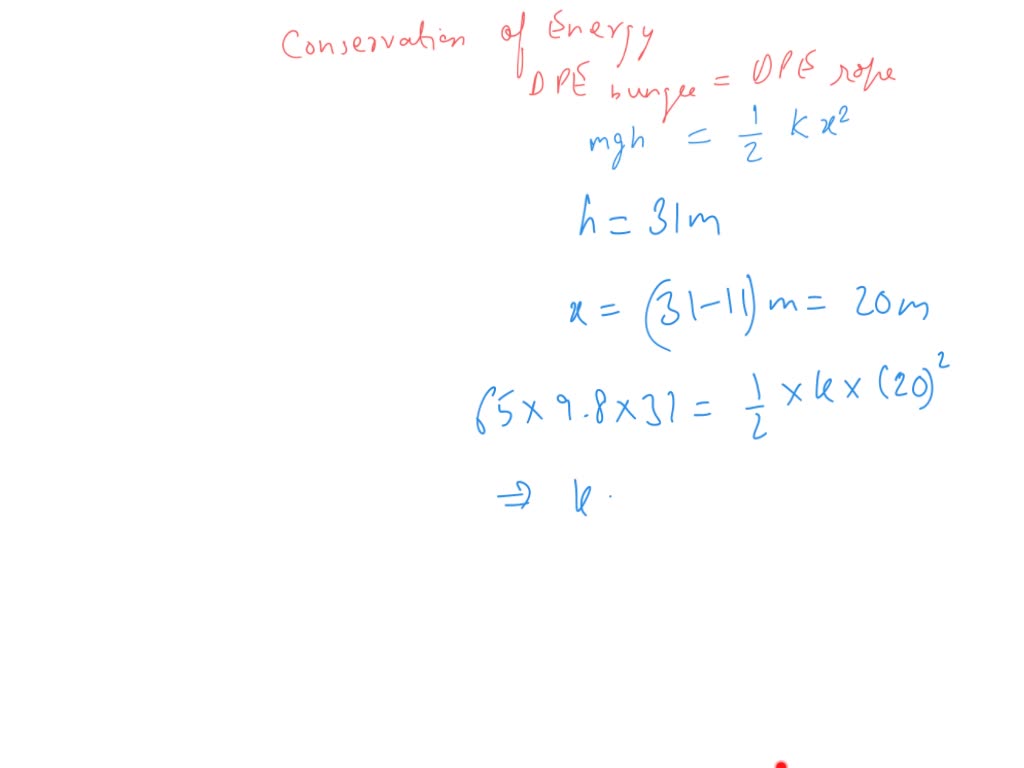 Conservation of Energy
DPE bungee = DPE rope
mgh = 1/2 k x²
h = 31m
x = (31-11) m = 20m
65 x 9.8 x 31 = 1/2 x k x (20)²
⇒ k .